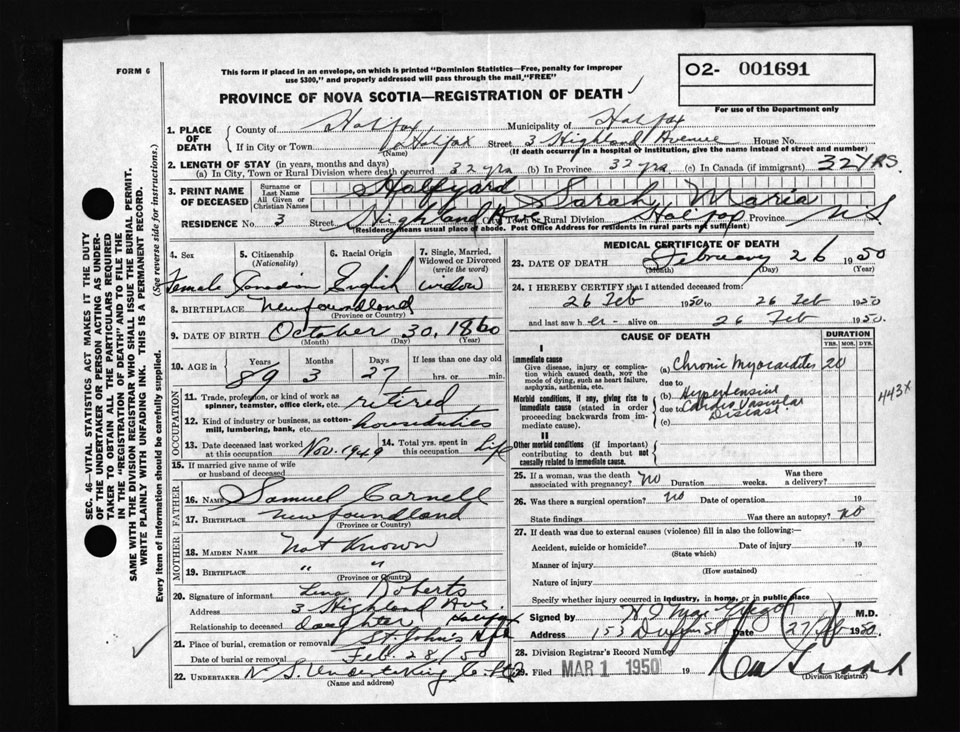 FORM 6
This form if placed in an envelope, on which is printed "Dominion Statistics—Free, penalty for improper
use $300," and properly addressed will pass through the mail "FREE"
O2- 001691
For use of the Department only
PROVINCE OF NOVA SCOTIA—REGISTRATION OF DEATH
1. PLACE OF DEATH
County of Halifax Municipality of Halifax
If in City or Town Halifax Street 3 Highland Avenue House No.
(Name) (If death occurred in a hospital or institution, give the name instead of street and number)
2. LENGTH OF STAY (in years, months and days)
(a) In City, Town or Rural Division where death occurred 32 yrs (b) In Province 32 yrs (c) In Canada (if immigrant) 32 YRS.
3. PRINT NAME OF DECEASED
Surname or Last Name Halfyard
All Given or Christian Names Sarah Maria
RESIDENCE No. 3 Street Highland Ave City, Town or Rural Division Halifax Province N.S
(Residence means usual place of abode. Post Office Address for residents in rural parts not sufficient)
4. Sex Female
5. Citizenship (Nationality) Canadian
6. Racial Origin English
7. Single, Married, Widowed or Divorced (write the word) widow
8. BIRTHPLACE Newfoundland
(Province or Country)
9. DATE OF BIRTH October 30, 1860
(Month) (Day) (Year)
10. AGE in Years 89 Months 3 Days 27 If less than one day old hrs. or min.
OCCUPATION
11. Trade, profession, or kind of work as spinner, teamster, office clerk, etc. retired
12. Kind of industry or business, as cotton-mill, lumbering, bank, etc. houseduties
13. Date deceased last worked at this occupation Nov. 1949
14. Total yrs. spent in this occupation Life
15. If married give name of wife or husband of deceased
FATHER
16. NAME Samuel Carnell
17. BIRTHPLACE Newfoundland
(Province or Country)
MOTHER
18. MAIDEN NAME Not Known
19. BIRTHPLACE " "
(Province or Country)
20. Signature of informant Lena Roberts
Address 3 Highland Ave. Halifax
Relationship to deceased daughter
21. Place of burial, cremation or removal St. John's Nfld
Date of burial or removal Feb. 28/50
22. UNDERTAKER N.S. Undertaking Co. Ltd
(Name and address)
MEDICAL CERTIFICATE OF DEATH
23. DATE OF DEATH February 26 1950
(Month) (Day) (Year)
24. I HEREBY CERTIFY that I attended deceased from:
26 Feb 1950 to 26 Feb 1950
and last saw her alive on 26 Feb 1950.
CAUSE OF DEATH
DURATION
YRS. MOS. DYS.
I
Immediate cause
Give disease, injury or complication which caused death, not the mode of dying, such as heart failure, asphyxia, asthenia, etc.
(a) Chronic Myocarditis 20
due to
Morbid conditions, if any, giving rise to immediate cause (stated in order proceeding backwards from immediate cause).
(b) Hypertensive
due to Cardiovascular
Disease
(c)
443X
II
Other morbid conditions (if important) contributing to death but not causally related to immediate cause.
25. If a woman, was the death associated with pregnancy? NO Duration weeks. Was there a delivery?
26. Was there a surgical operation? NO Date of operation 19
State findings Was there an autopsy? NO
27. If death was due to external causes (violence) fill in also the following:—
Accident, suicide or homicide? Date of injury 19
(State which)
Manner of injury
(How sustained)
Nature of injury
Specify whether injury occurred in industry, in home, or in public place
Signed by H J MacGregor M.D.
Address 153 Date 27 Feb 1950.
28. Division Registrar's Record Number
29. Filed MAR 1 1950 19
(Division Registrar)
SEC. 46—VITAL STATISTICS ACT MAKES IT THE DUTY
OF THE UNDERTAKER OR PERSON ACTING AS UNDER-
TAKER TO OBTAIN ALL THE PARTICULARS REQUIRED
IN THE "REGISTRATION OF DEATH" AND TO FILE THE
SAME WITH THE DIVISION REGISTRAR WHO SHALL ISSUE THE BURIAL PERMIT.
WRITE PLAINLY WITH UNFADING INK. THIS IS A PERMANENT RECORD.
Every item of information should be carefully supplied. (See reverse side for instructions.)